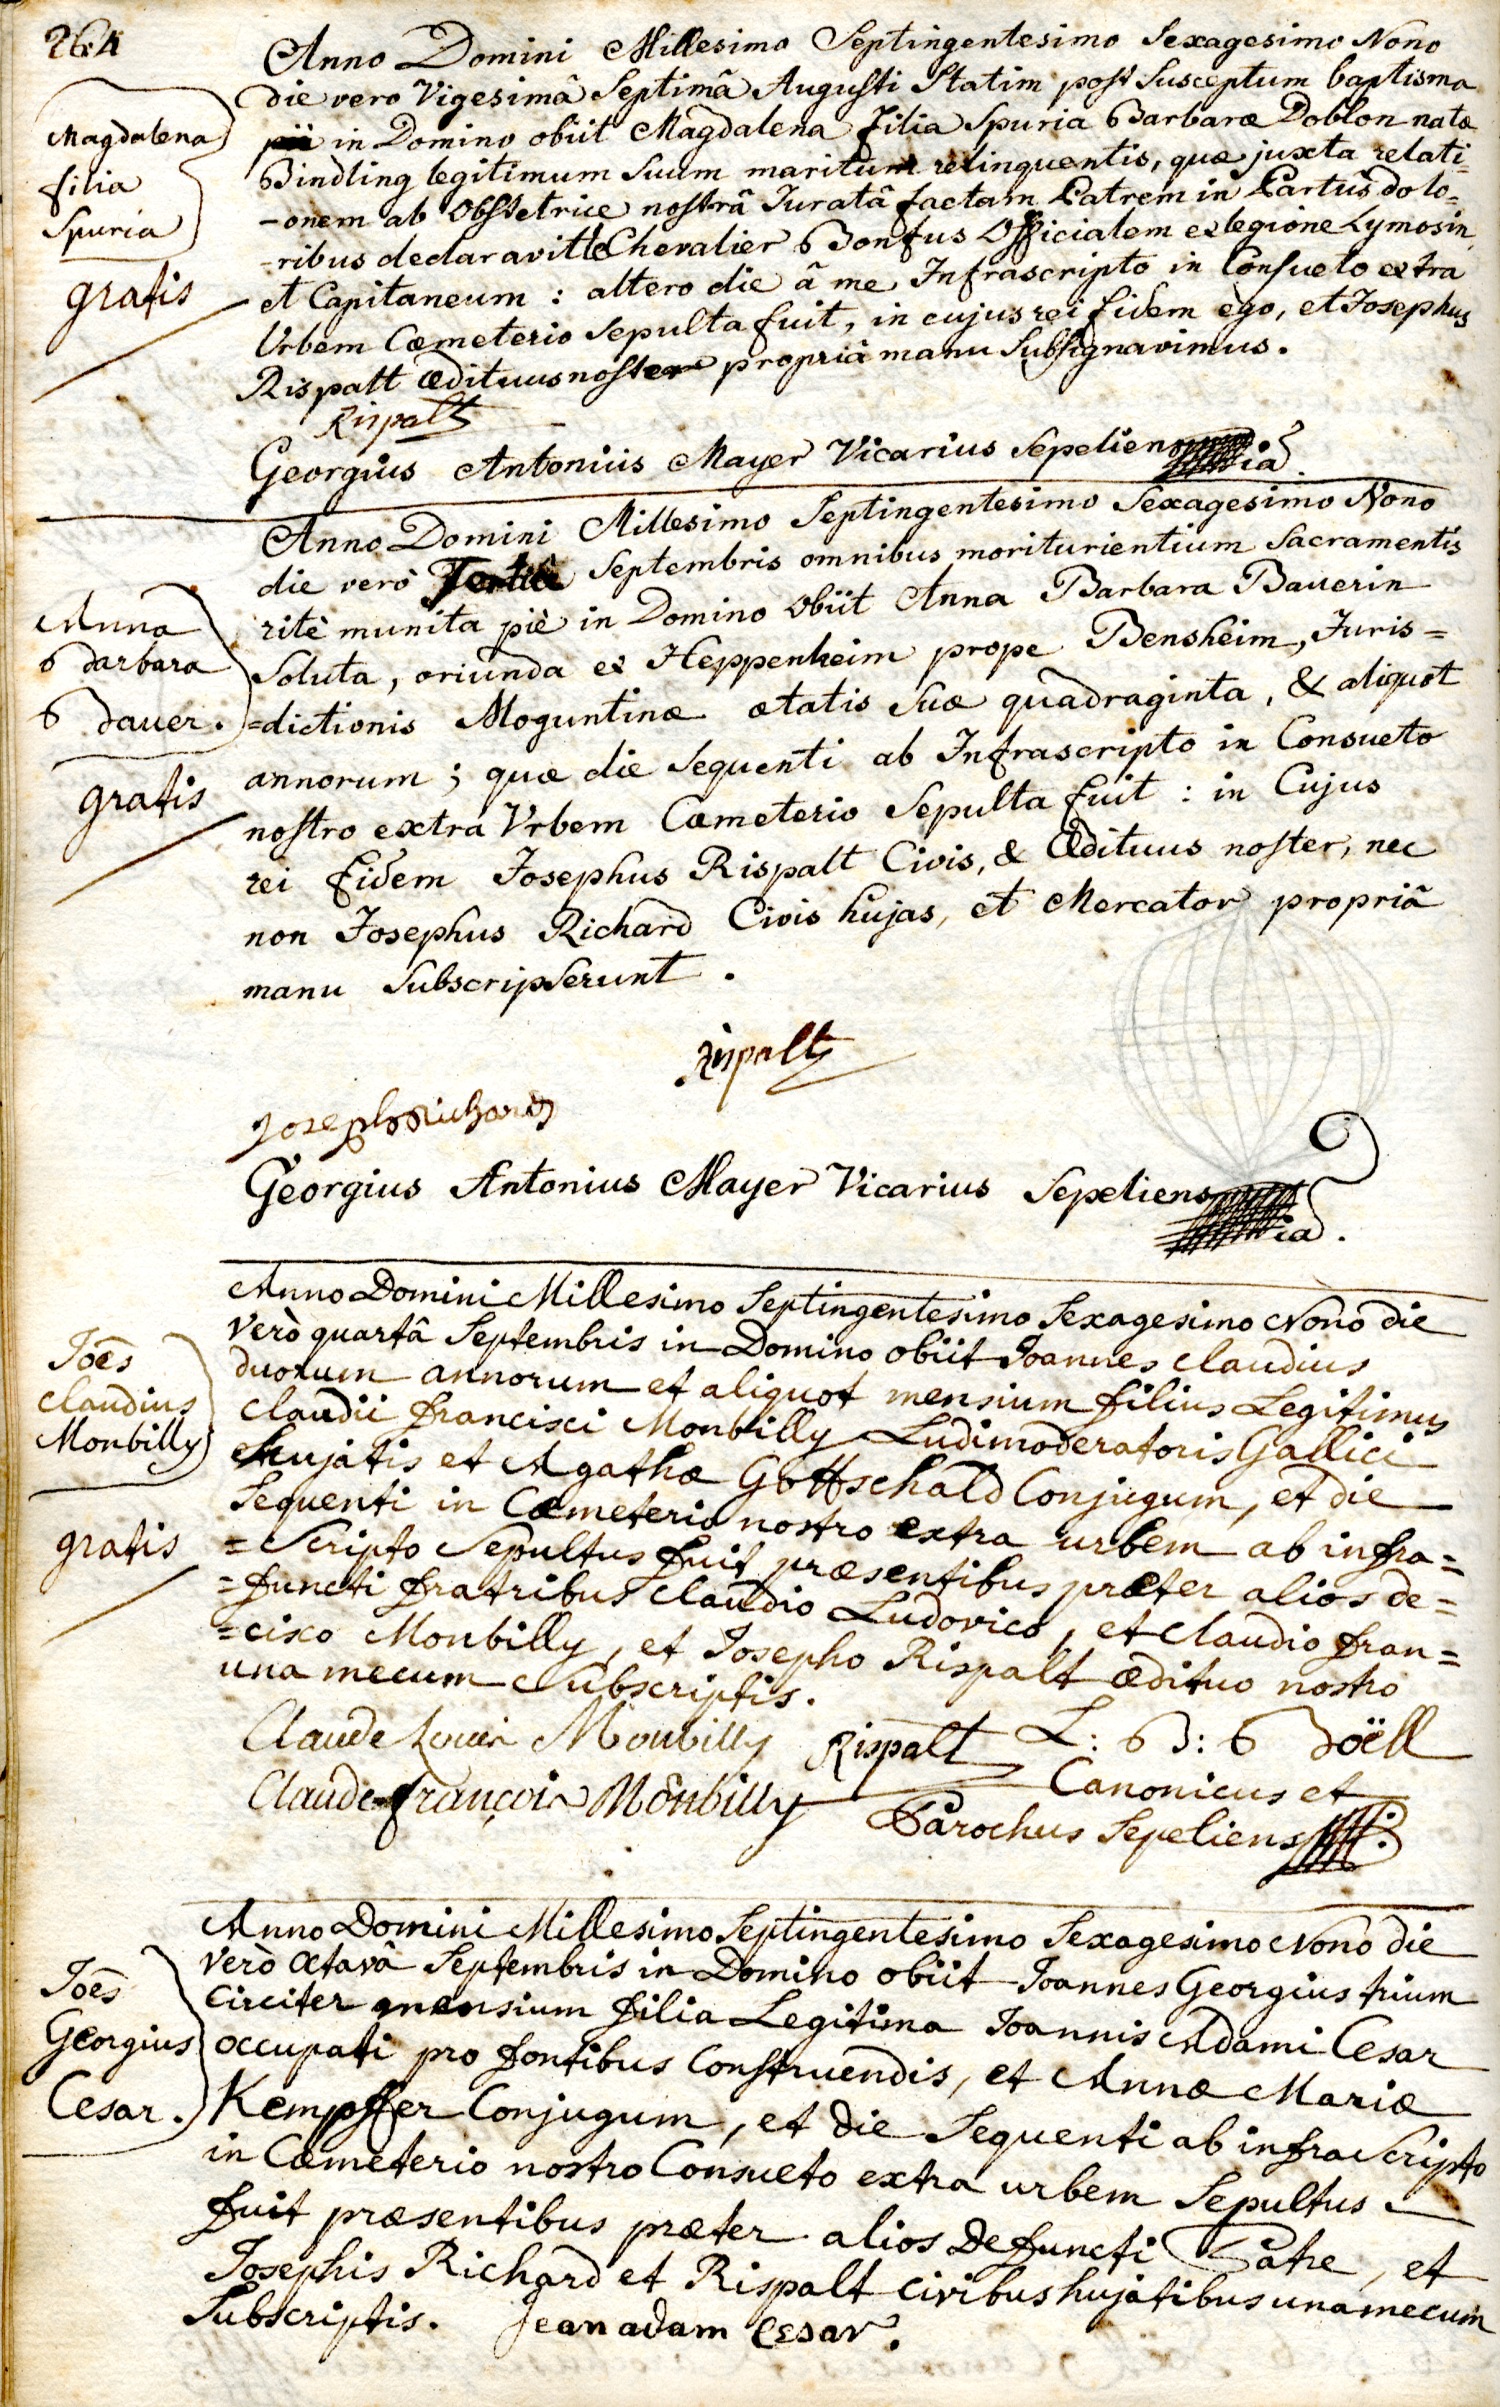 264
Magdalena
filia
Spuria
gratis
Anno Domini Millesimo Septingentesimo Sexagesimo Nono
die vero Vigesimâ Septimâ Augusti Statim post Susceptum baptisma
in Domino obiit Magdalena Filia Spuria Barbaræ Doblon natæ
Bindling legitimum Suum maritum relinquentis, quæ juxta relati=
-onem ab Obstetrice nostrâ Juratâ factam Patrem in Partûs dolo=
-ribus declaravit le Chevalier Bonfus Officialem ex legione Lymosin
et Capitaneum : altero die â me Infrascripto in Consueto extra
Urbem Cæmeterio Sepulta fuit, in cujus rei fidem ego, et Josephus
Rispalt ædituus noster propriâ manu Subsignavimus.
Rispalt
Georgius Antonius Mayer Vicarius Sepeliens
Anna
Barbara
Bauer.
gratis
Anno Domini Millesimo Septingentesimo Sexagesimo Nono
die verò Tertiâ Septembris omnibus moriturientium Sacramentis
ritè munita piè in Domino Obiit Anna Barbara Bauerin
Soluta, oriunda ex Heppenheim prope Bensheim, Juris=
=dictionis Moguntinæ ætatis Suæ quadraginta, & aliquot
annorum ; quæ die Sequenti ab Infrascripto in Consueto
nostro extra Vrbem Cæmeterio Sepulta fuit : in Cujus
rei fidem Josephus Rispalt Civis, & Ædituus noster, nec
non Josephus Richard Civis hujas, et Mercator propriâ
manu Subscripserunt .
Rispalt
Joseph Richard
Georgius Antonius Mayer Vicarius Sepeliens
Jões
Claudius
Monbilly
gratis
Anno Domini Millesimo Septingentesimo Sexagesimo Nono die
Verò quartâ Septembris in Domino obiit Joannes Claudius
duorum annorum et aliquot mensium filius Legitimus
Claudii francisci Monbilly Ludimoderatoris Gallici
hujatis et Agathæ Gottschald Conjugum, et die
Sequenti in Cæmeterio nostro extra urbem ab infra=
=Scripto Sepultus fuit præsentibus præter alios de=
=functi fratribus Claudio Ludovico, et Claudio fran=
=cisco Monbilly, et Josepho Rispalt ædituo nostro
una mecum Subscriptis.
Claude Louis Monbilly Rispalt L: B: Boëll
Claude françois Monbilly Canonicus et
Parochus Sepeliens
Jões
Georgius
Cesar.
Anno Domini Millesimo Septingentesimo Sexagesimo Nono die
Verò Octavâ Septembris in Domino obiit Joannes Georgius trium
Circiter mensium filia Legitima Joannis Adami Cesar
occupati pro fontibus Construendis, et Annæ Mariæ
Kempffer Conjugum, et die Sequenti ab infraScripto
in Cæmeterio nostro Consueto extra urbem Sepultus
fuit præsentibus præter alios Defuncti Patre, et
Josephis Richard et Rispalt Civibus hujatibus una mecum
Subscriptis. Jean adam Cesar.